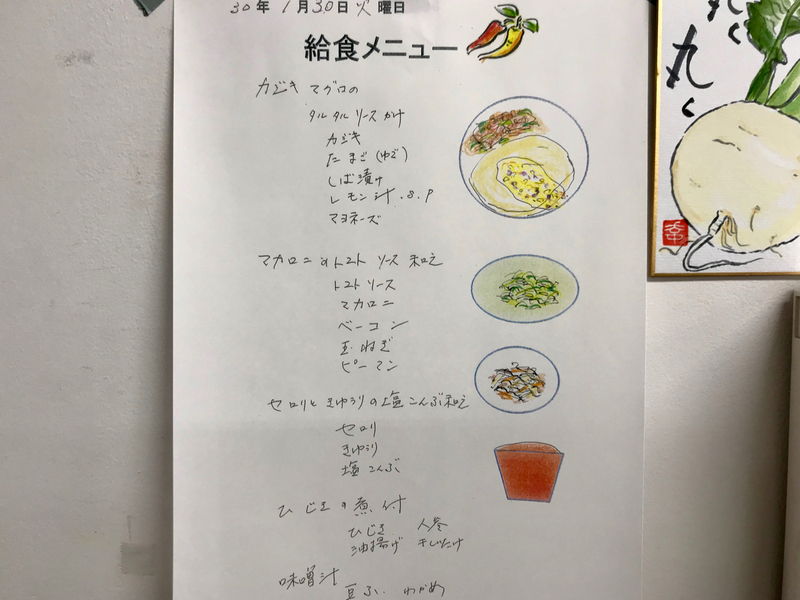 30年 1月30日火曜日
給食メニュー
カジキ マグロの
タルタルソースかけ
カジキ
たまご(ゆで)
しば漬け
レモン汁
マヨネーズ
マカロニのトマトソース和え
トマトソース
マカロニ
ベーコン
玉ねぎ
ピーマン
セロリときゅうりの塩こんぶ和え
セロリ
きゅうり
塩こんぶ
ひじきの煮付
ひじき 人参
油揚げ 干しいたけ
味噌汁
豆ふ わかめ
丸く